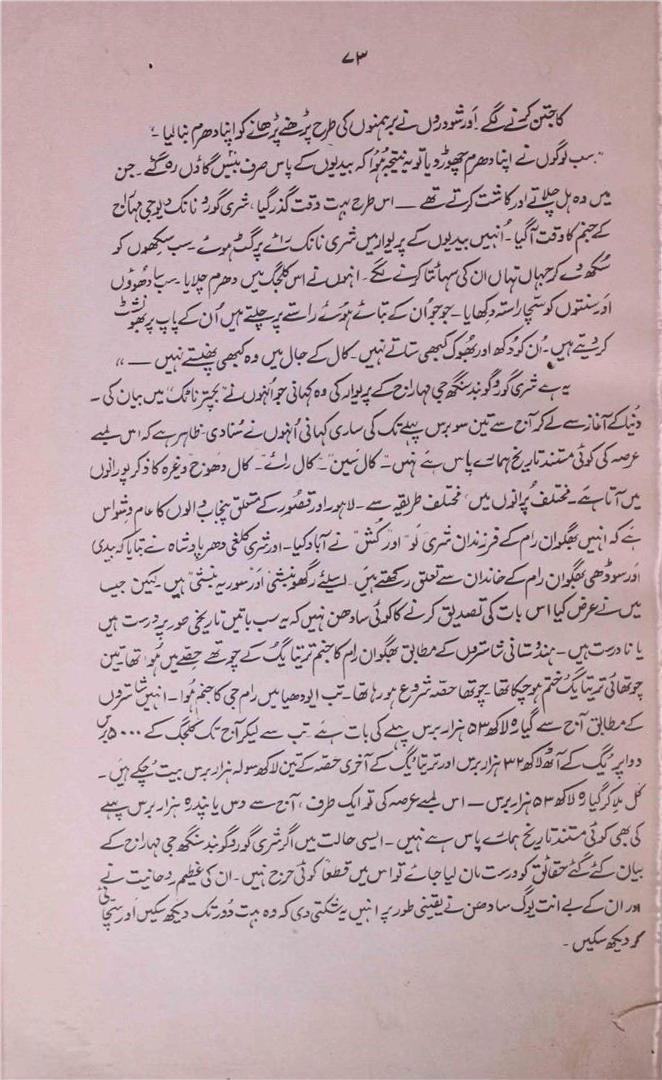 ۷۳
کا جتن کرنے لگے۔ اور شودروں نے برہمنوں کی طرح پڑھنے پڑھانے کو اپنا دھرم بنا لیا۔"
"سب لوگوں نے اپنا دھرم چھوڑ دیا تو یہ نتیجہ ہوا کہ بیدیوں کے پاس صرف بیس گاؤں رہ گئے۔ جن
میں وہ ہل چلاتے اور کاشت کرتے تھے — اس طرح بہت وقت گذر گیا، شری گورو نانک دیو جی مہاراج
کے جنم کا وقت آ گیا۔ اُنہیں بیدیوں کے پریوار میں شری نانک رائے پرگٹ ہوئے۔ سب سکھوں کو
سُکھ دے کر جہاں تہاں ان کی سہائتا کرنے لگے۔ انہوں نے اس کلجگ میں دھرم چلایا۔ سب سادھوؤں
اور سنتوں کو سچا راستہ دکھایا۔ جو جو اُن کے بتائے ہوئے راستے پر چلتے ہیں اُن کے پاپ پربھو نشٹ
کر دیتے ہیں۔ اُن کو دُکھ اور بھوک کبھی ستاتے نہیں۔ کال کے جال میں وہ کبھی پھنستے نہیں — "
یہ ہے شری گورو گوبند سنگھ جی مہاراج کے پریوار کی وہ کہانی جو اُنہوں نے "بچتر ناٹک" میں بیان کی۔
دُنیا کے آغاز سے لے کر آج سے تین سو برس پہلے تک کی ساری کہانی اُنہوں نے سُنا دی۔ ظاہر ہے کہ اس لمبے
عرصہ کی کوئی مستند تاریخ ہمارے پاس ہے نہیں۔ "کال سین"۔ کال رائے۔ کال دھوج وغیرہ کا ذکر پورانوں
میں آتا ہے۔ مختلف پُرانوں میں، مختلف طریقہ سے۔ لاہور اور قصور کے متعلق پنجاب والوں کا عام وشواس
ہے کہ انہیں بھگوان رام کے فرزندان شری "لَو" اور "کُش" نے آباد کیا۔ اور شری کلغی دھر پادشاہ نے بتایا کہ بیدی
اور سوڈھی بھگوان رام کے خاندان سے تعلق رکھتے ہیں۔ اسلئے رگھو بنشی اور سوریہ بنشی ہیں۔ لیکن جیسا
میں نے عرض کیا اس بات کی تصدیق کرنے کا کوئی سادھن نہیں کہ یہ سب باتیں تاریخی طور پر درست ہیں
یا نا درست ہیں۔ ہندوستانی شاستروں کے مطابق بھگوان رام کا جنم تریتا یگ کے چوتھے حِصے میں ہوا تھا۔ تین
چوتھائی تریتا یگ ختم ہو چکا تھا۔ چوتھا حصہ شروع ہو رہا تھا۔ تب ایودھیا میں رام جی کا جنم ہوا۔ انہیں شاستروں
کے مطابق آج سے گیارہ لاکھ ۵۳ ہزار برس پہلے کی بات ہے۔ تب سے لیکر آج تک کلجگ کے ۵۰۰۰ برس
دواپر یُگ کے آٹھ لاکھ ۳۲ ہزار برس اور تریتا یُگ کے آخری حصہ کے تین لاکھ سولہ ہزار برس بیت چکے ہیں۔
کُل ملا کر گیارہ لاکھ ۵۳ ہزار برس — اس لمبے عرصہ کی تو ایک طرف، آج سے دس یا پندرہ ہزار برس پہلے
کی بھی کوئی مستند تاریخ ہمارے پاس ہے نہیں۔ ایسی حالت میں اگر شری گورو گوبند سنگھ جی مہاراج کے
بیان کئے گئے حقائق کو درست مان لیا جائے تو اس میں قطعاً کوئی حرج نہیں۔ ان کی عظیم روحانیت نے
اور ان کے بے انت یوگ سادھن نے یقینی طور پر انہیں یہ شکتی دی کہ وہ بہت دُور تک دیکھ سکیں اور سچائی
کو دیکھ سکیں۔